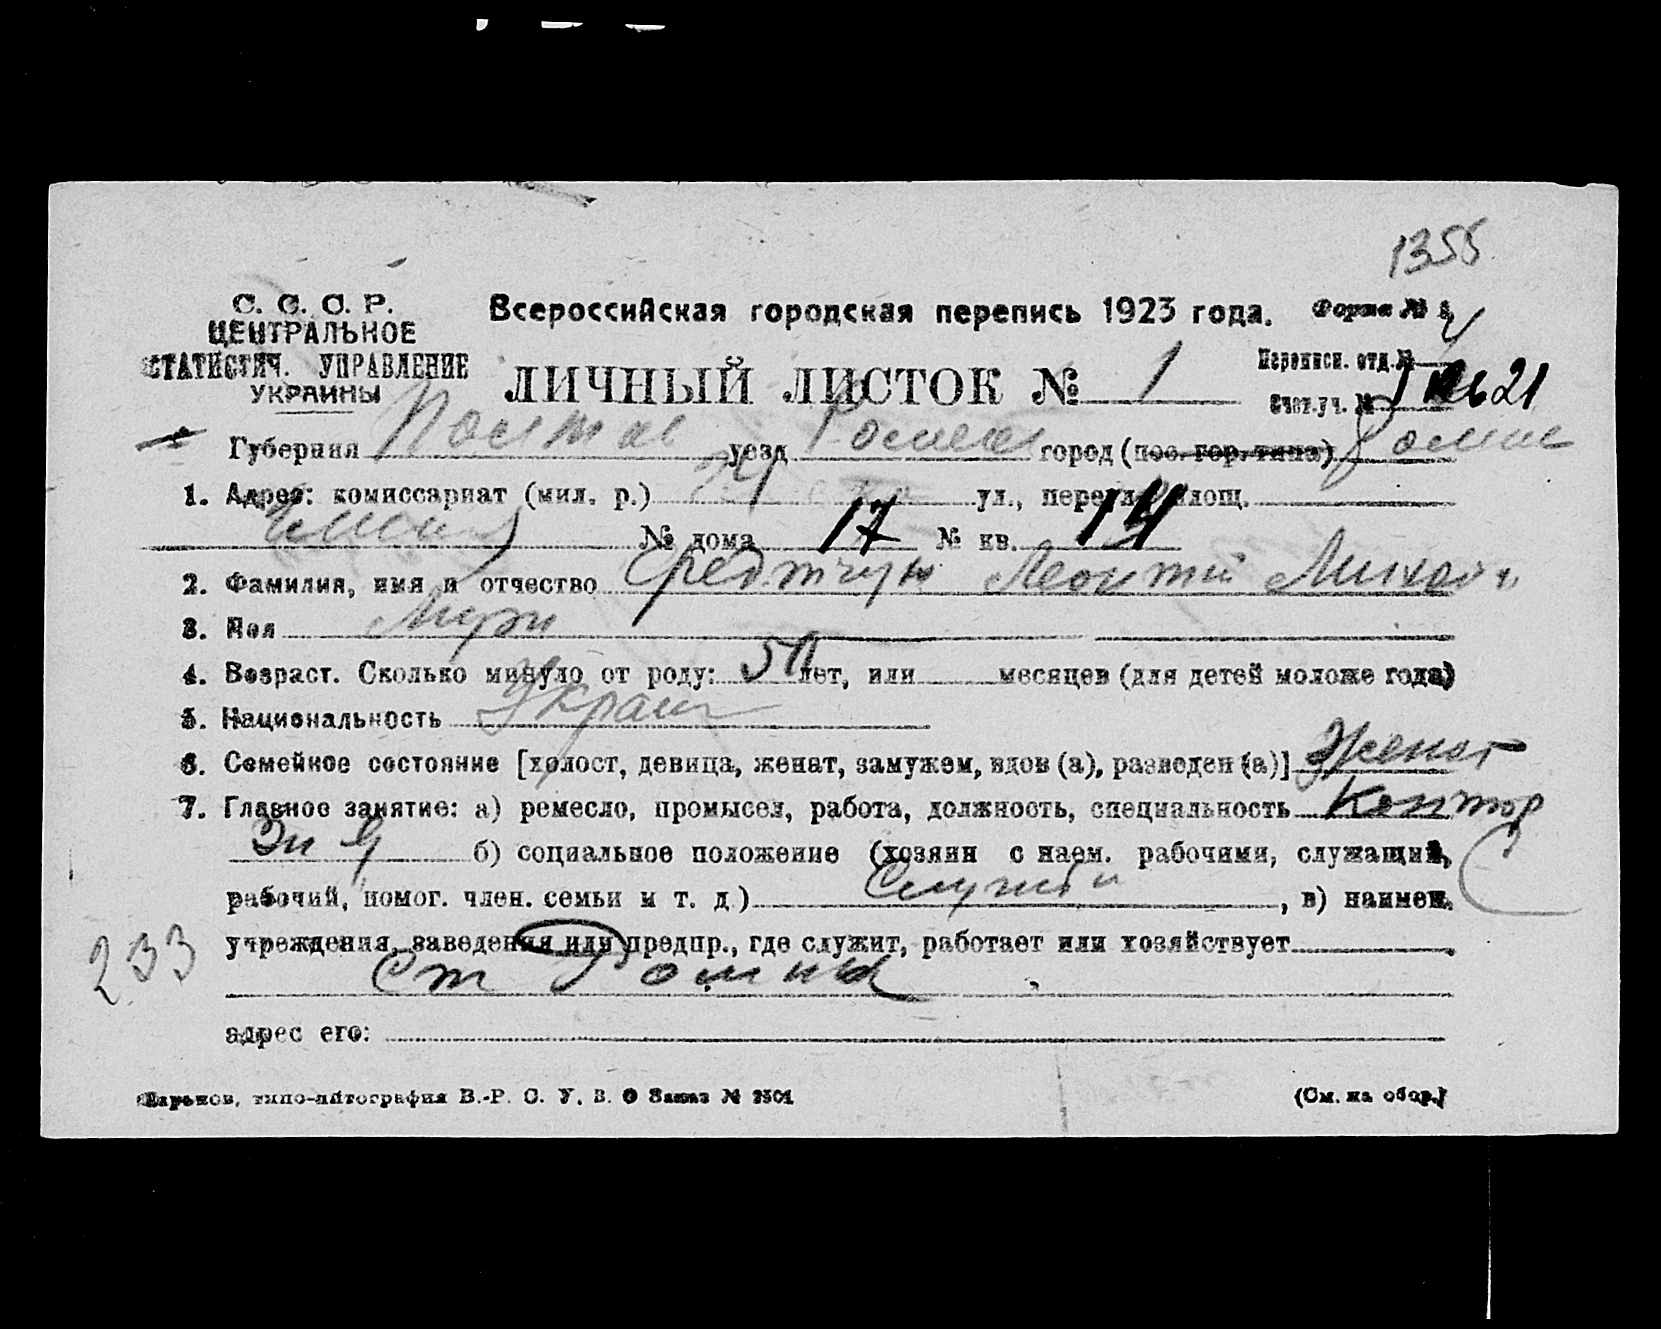 1355
С. С. С. Р.
ЦЕНТРАЛЬНОЕ
СТАТИСТИЧ. УПРАВЛЕНИЕ
УКРАИНЫ
Всероссийская городская перепись 1923 года.
Форма №
ЛИЧНЫЙ ЛИСТОК № 1
Переписн. отд. №
Счет. уч. № 21
Губерния Полтав уезд Ромен город (пос. гор. типа) Ромны
1. Адрес: комиссариат (мил. р.) ул., переул., площ.
№ дома 17 № кв. 14
2. Фамилия, имя и отчество Леонтий Михай
3. Пол Муж
4. Возраст. Сколько минуло от роду: 50 лет, или месяцев (для детей моложе года)
5. Национальность Украин
6. Семейное состояние [холост, девица, женат, замужем, вдов (а), разведен (а)] Женат
7. Главное занятие: а) ремесло, промысел, работа, должность, специальность Контор
б) социальное положение (хозяин с наем. рабочими, служащий,
рабочий, помог. член. семьи и т. д.) Служащ, в) наимен.
233
учреждения, заведения или предпр., где служит, работает или хозяйствует
Ст Ромны
адрес его:
Харьков, типо-литография В.-Р. С. У. В. О Заказ № 3501
(См. на обор.)